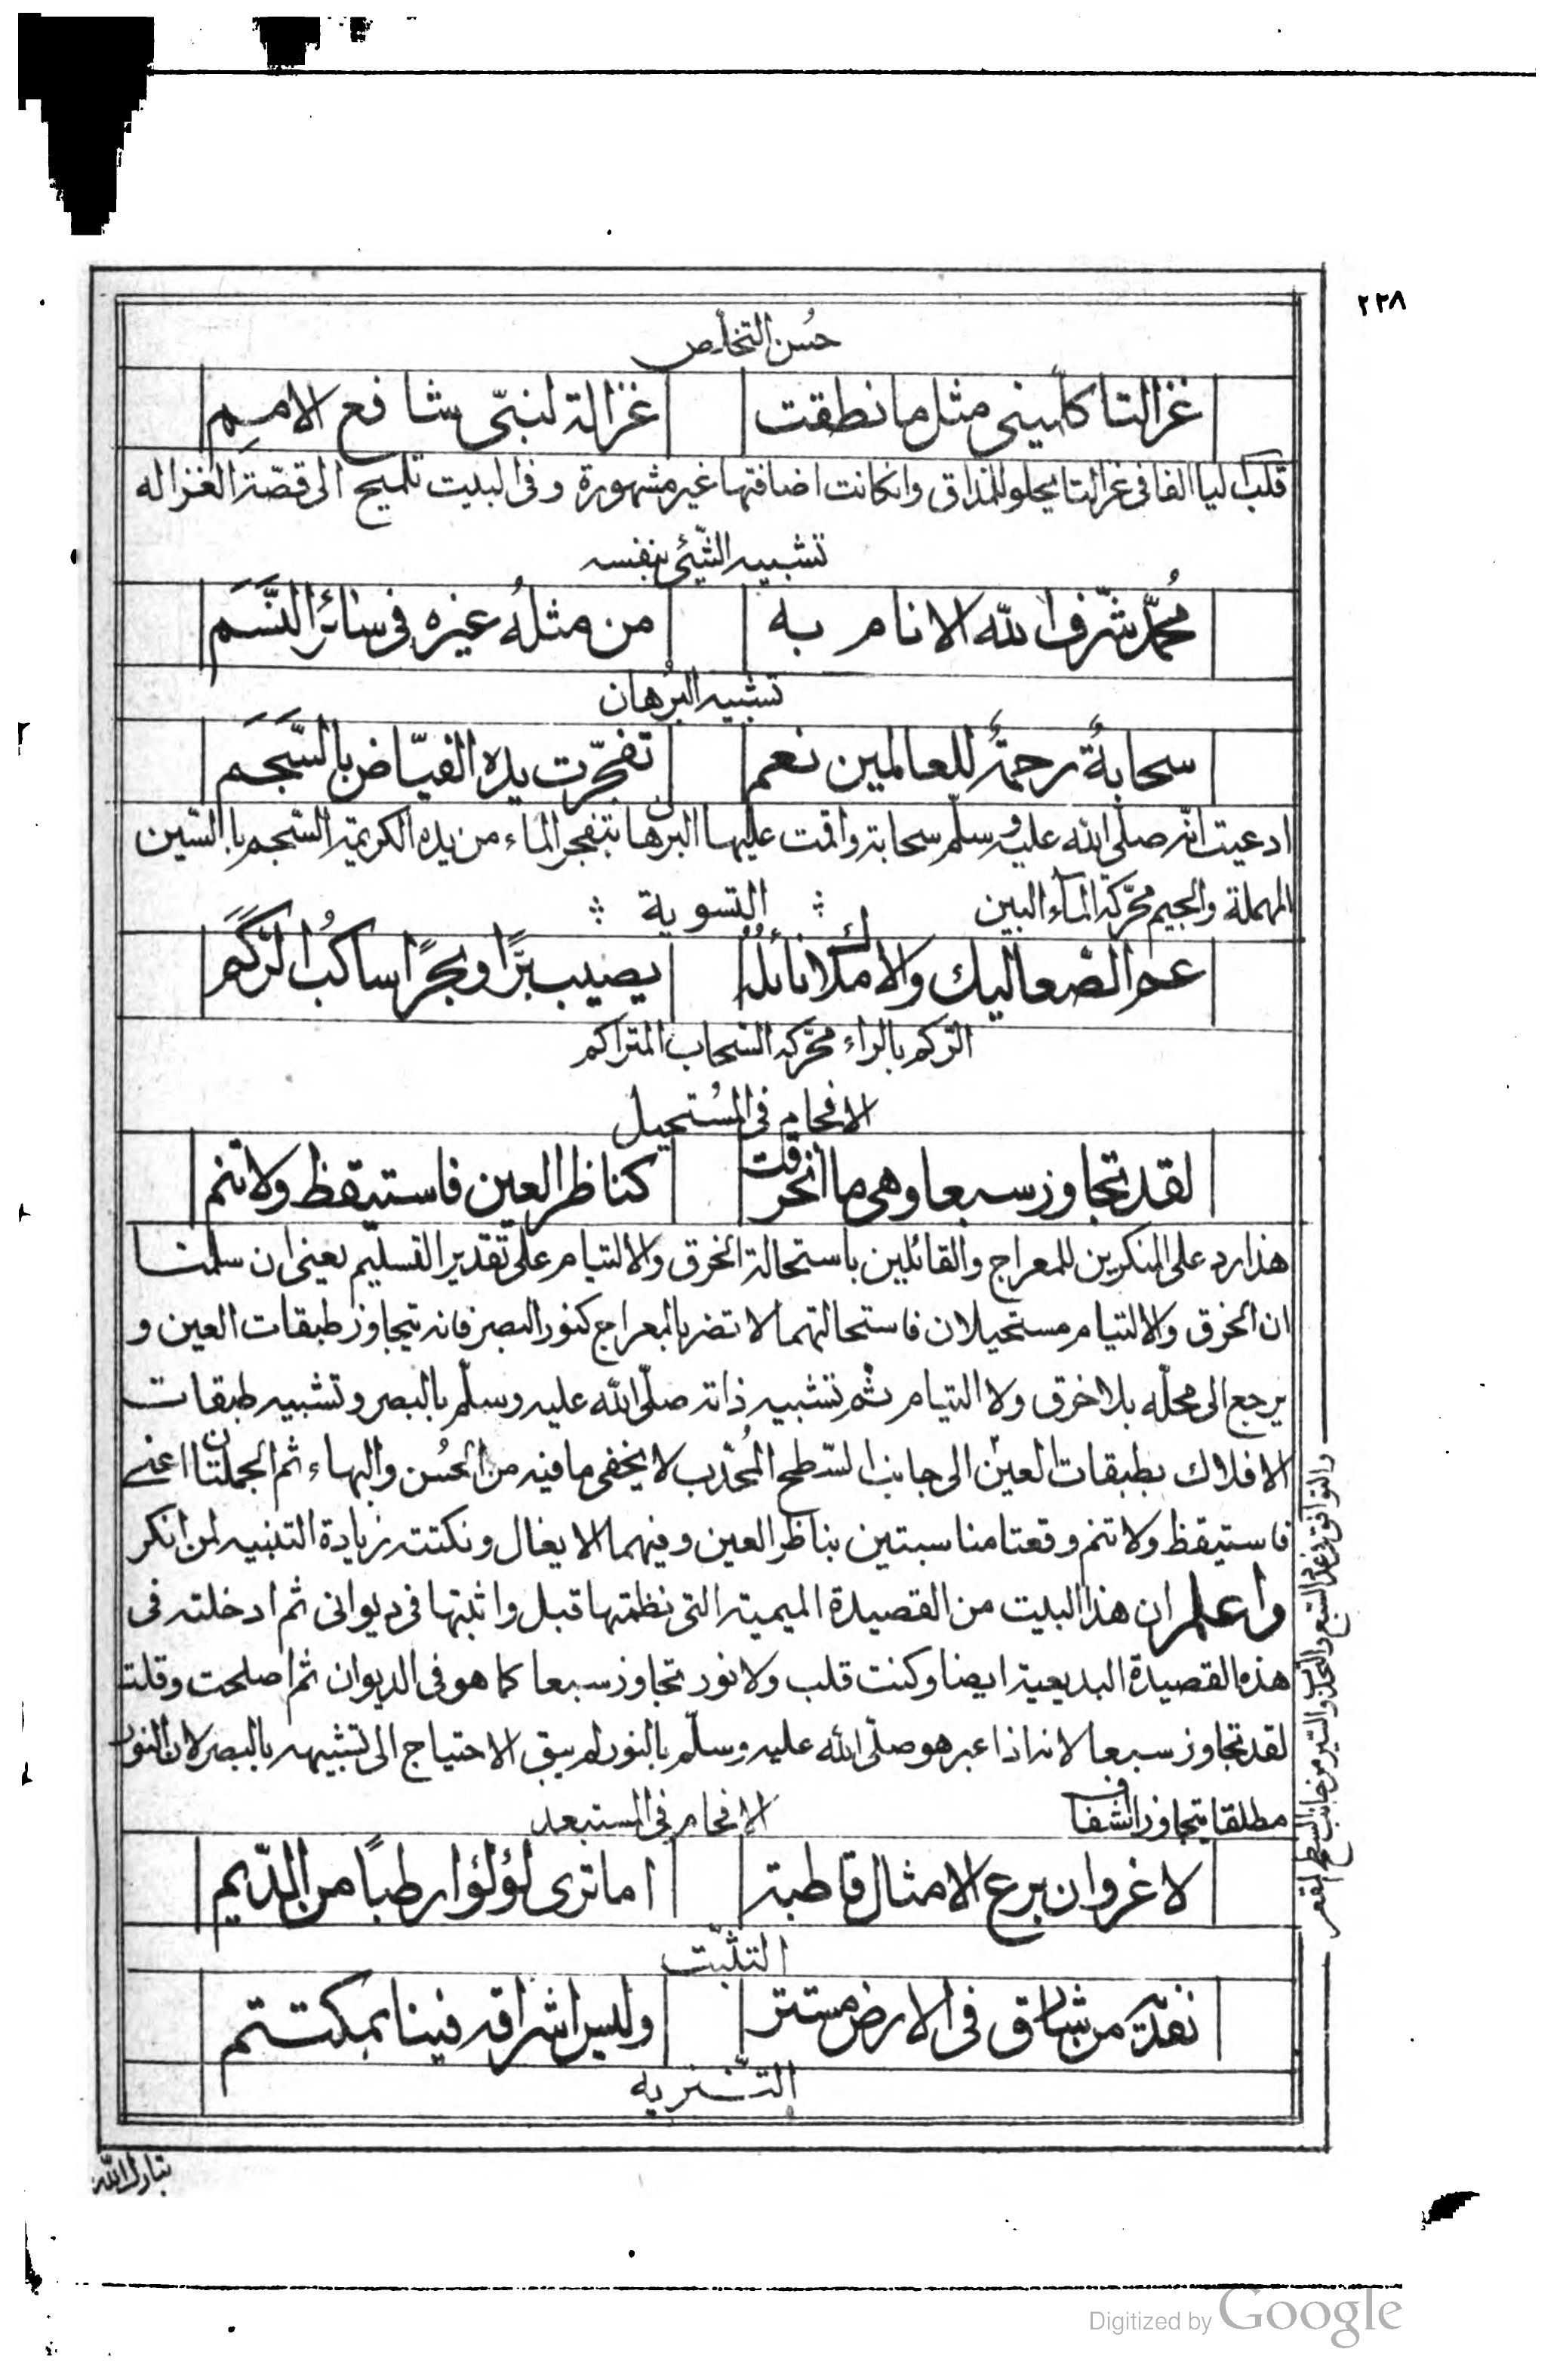 ٢٢٨
حُسن التخلّص
غزالتا كلّميني مثل ما نطقت غزالة لنبيّ شافع الامم
قلب الياء الفا في غزالتا يحلو للمذاق وانكانت اضافتها غير مشهورة وفى البيت تلميح الى قصّة الغزاله
تشبيه الشّيئ بنفسه
مُحمّد شرّف الله الانام به من مثلُه غيره فى سائر النَّسَم
تشبيه البرُهان
سحابةُ رحمةٌ للعالمين نعم تفجّرت يده الفيّاض بالسَّجَم
ادعيت انّه صلّى الله عليه وسلّم سحابة واقمت عليها البرهان بتفجر الماء من يده الكريمة السّجم باالسّين
المهملة والجيم محّركة المآء البين
التسوية
عم الصّعاليك والاملاك نائلُهُ يصيب برًّا وبحرًا ساكبُ الرَّكَم
الرّكم بالراء محّركة السّحاب المتراكم
الافحام فى المُستحيل
لقد تجاوز سبعا وهى ما انخرقت كناظر العين فاستيقظ ولا تنم
هذا رد على المنكرين للمعراج والقائلين باستحالة الخرق والالتيام على تقدير التسليم يعنى ان سلمنا
ان الخرق والالتيام مستحيلان فاستحالتهما لا تضر بالمعراج كنور البصر فانه يتجاوز طبقات العين و
يرجع الى محلّه بلا خرق ولا التيام ثم تشبيه ذاته صلّى الله عليه وسلّم بالبصر وتشبيه طبقات
الافلاك بطبقات العين الى جانب السّطح المُحّدب لا يخفى ما فيه من الحُسن والبهاء ثم الجملتان اعنے
فاستيقظ ولا تنم وقعتا مناسبتين بناظر العين وفيهما الايغال ونكتته زيادة التنبيه لمن انكر
واعلم ان هذا البيت من القصيدة الميمية التى نظمتها قبل واثبتها فى ديوانى ثم ادخلته فى
هذه القصيدة البديعية ايضا وكنت قلت ولا نور تجاوز سبعا كما هو فى الديوان ثم اصلحت وقلت
لقد تجاوز سبعا لانه اذا عبر هو صلّى الله عليه وسلّم بالنور لم يبق الاحتياج الى تشبيهه بالبصر لان النور
مطلقا يتجاوز الشفاف
الافحام فى المستبعد
لا غروان برع الامثال قاطبة اما ترى لؤلؤا رطبًا من الدّيم
التثبّت
نفديه من شارق فى الارض مستتر وليس اشراقه فينا بمكتتم
التّنزيه
تبارك الله
Digitized by Google